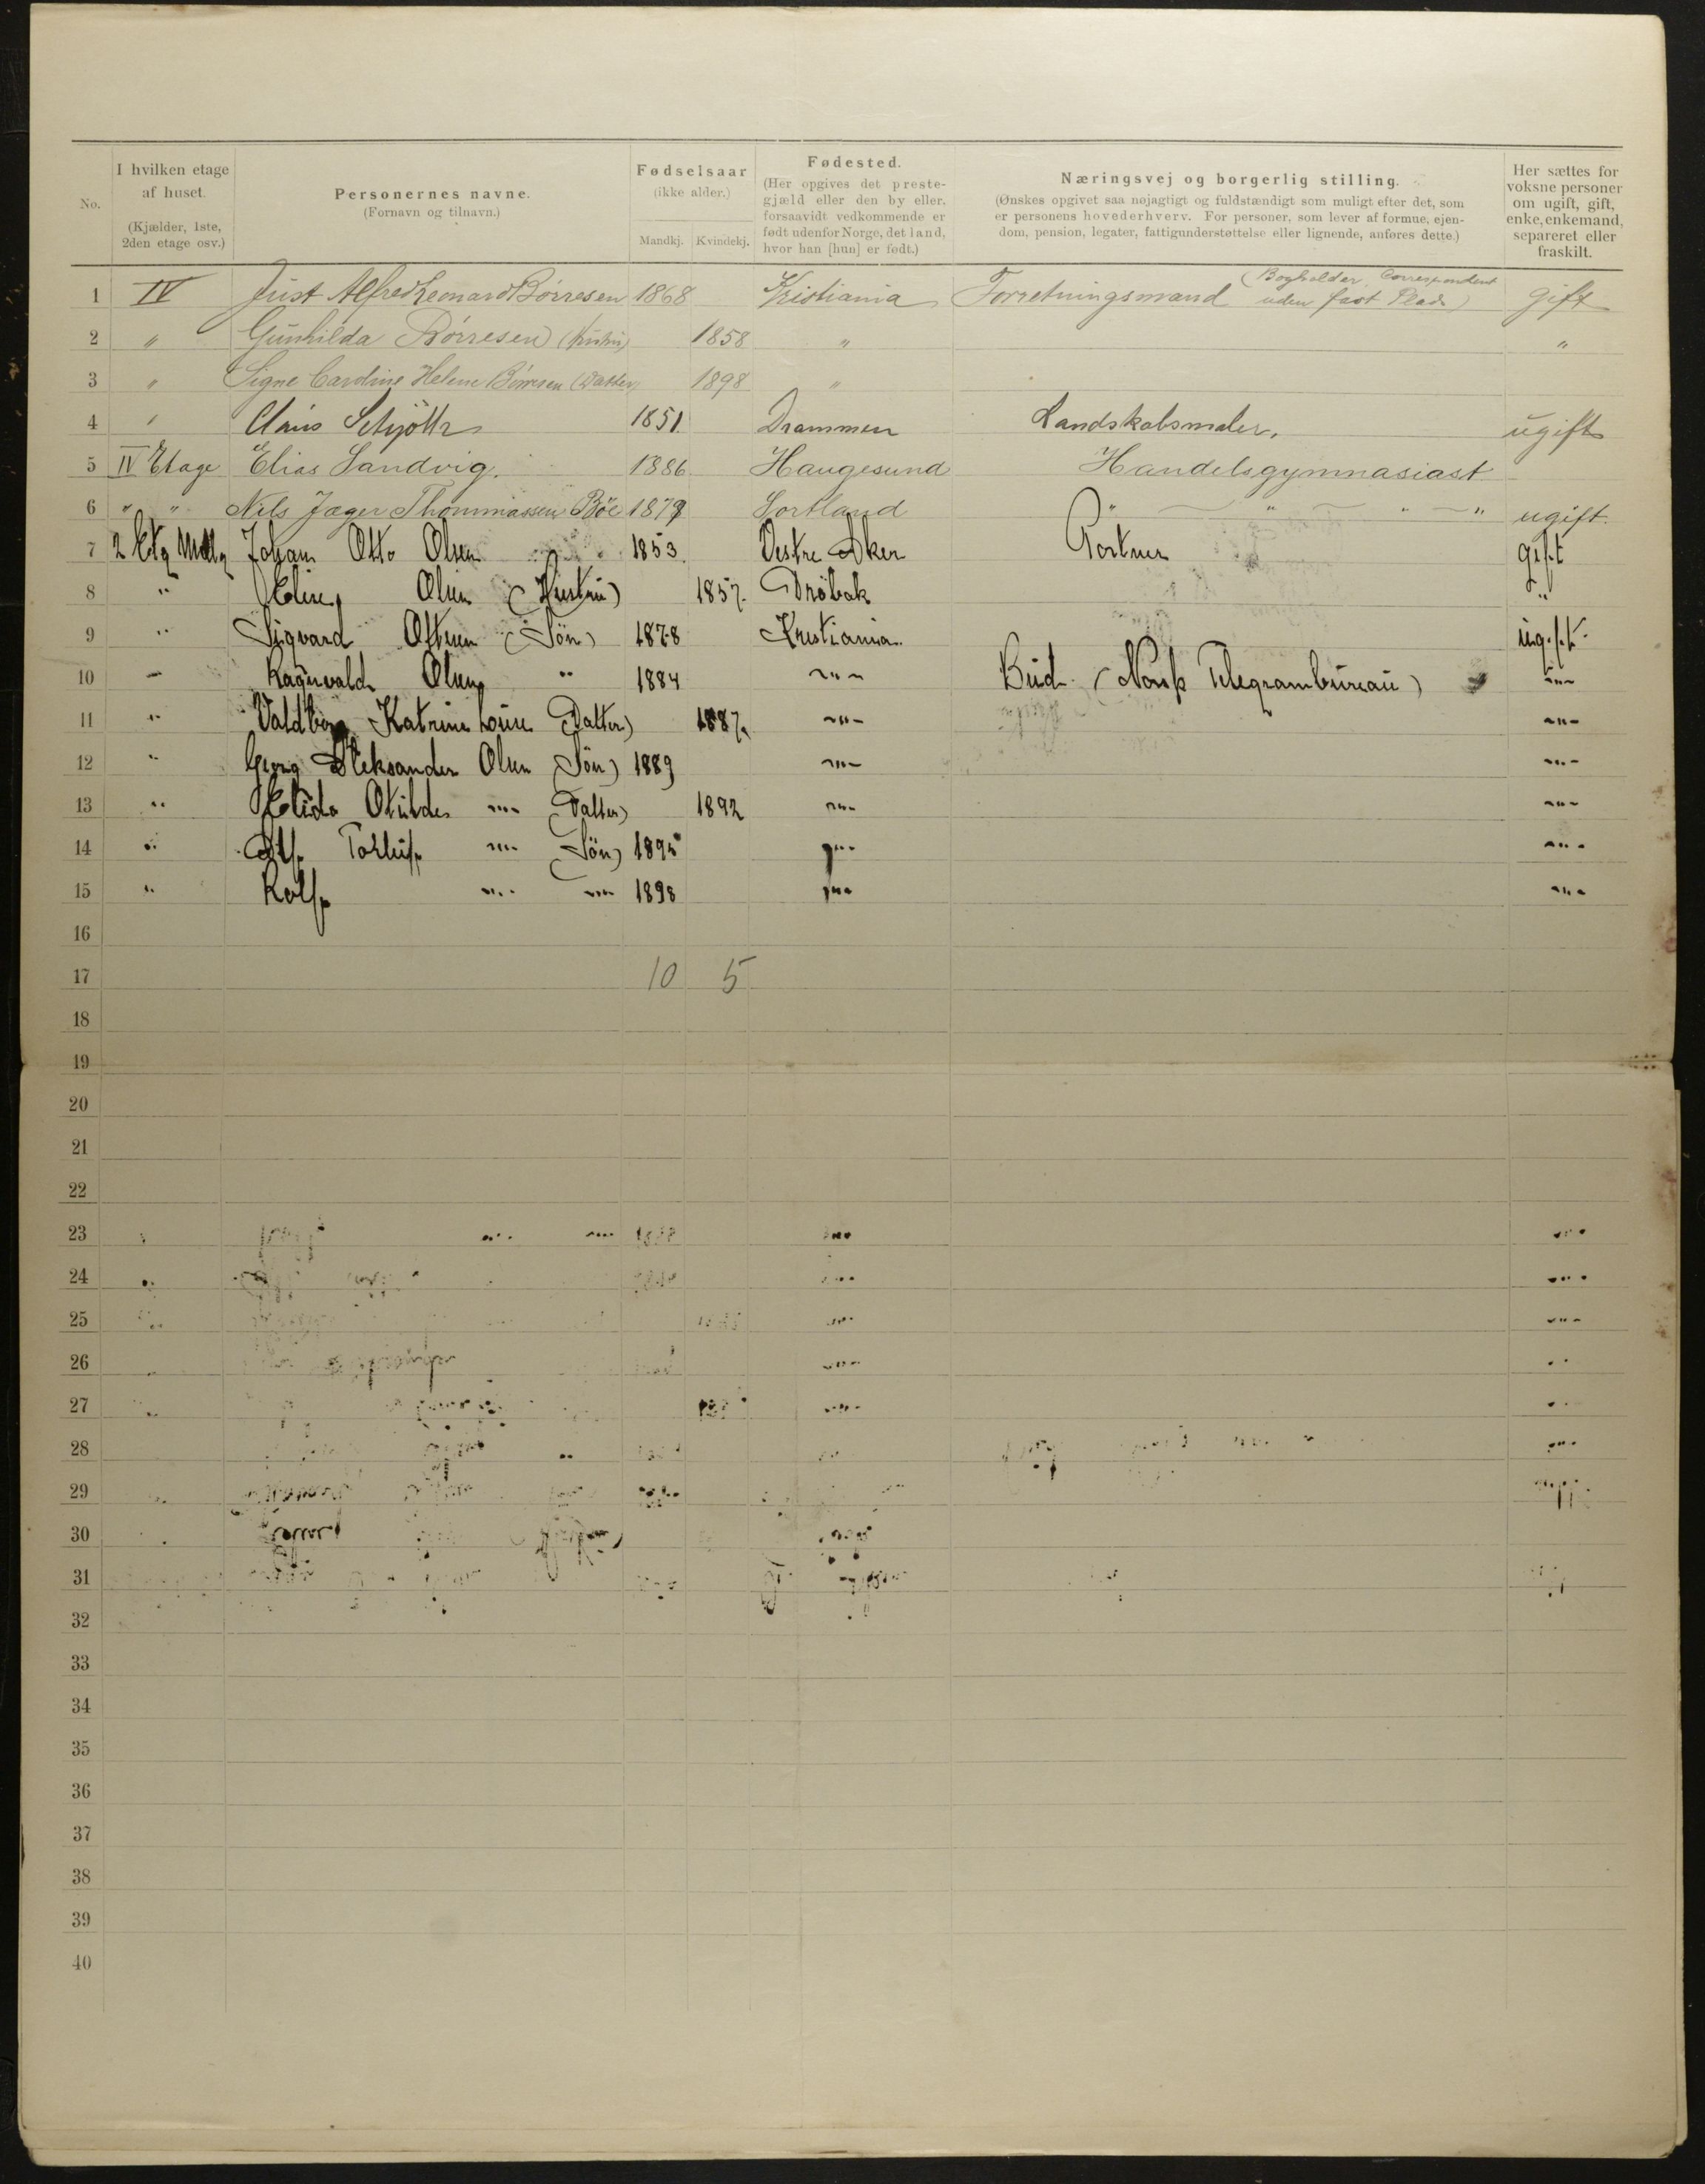 No.
I hvilken etage af huset.
(Kjælder, 1ste, 2den etage osv.)
Personernes navne.
(Fornavn og tilnavn.)
Fødselsaar
(ikke alder.)
Mandkj. Kvindekj.
Fødested.
(Her opgives det preste-
gjæld eller den by eller,
forsaavidt vedkommende er
født udenfor Norge, det land,
hvor han [hun] er født.)
Næringsvej og borgerlig stilling.
(Ønskes opgivet saa nøjagtigt og fuldstændigt som muligt efter det, som
er personens hovederhverv. For personer, som lever af formue, ejen-
dom, pension, legater, fattigunderstøttelse eller lignende, anføres dette.)
Her sættes for
voksne personer
om ugift, gift,
enke, enkemand,
separeret eller
fraskilt.
1 IV Just Alfred Leonard Børresen 1868 Kristiania Forretningsmand (Bogholder, Correspondent uden fast Plads) gift
2 " Gunhilda Børresen (Hustru) 1858 " "
3 " Signe Caroline Helene Børresen (Datter) 1898 "
4 " Claus Schjöth 1851. Drammen Landskabsmaler. ugift
5 IV Etage Elias Sandvig. 1886 Haugesund Handelsgymnasiast
6 " " Nils Jæger Thommassen Böe 1879 Sortland " " " " ugift.
7 2 Etg Johan Otto Olsen 1853. Vestre Aker Portner gift
8 " Elise Olsen (Hustru) 1857. Drøbak "
9 " Sigvard Ottesen (Søn) 1878 Kristiania. ugift
10 " Ragnvald Olsen " 1884 " Bud (Norsk Telegrambureau) "
11 " Valdborg Katrine Louise (Datter) 1887 " "
12 " Georg Aleksander Olsen (Søn) 1889 " "
13 " Elida Otilde " (Datter) 1892 " "
14 " Alf Torleif " (Søn) 1895 " "
15 " Rolf " " 1898 " "
16
17 10 5
18
19
20
21
22
23
24
25
26
27
28
29
30
31
32
33
34
35
36
37
38
39
40